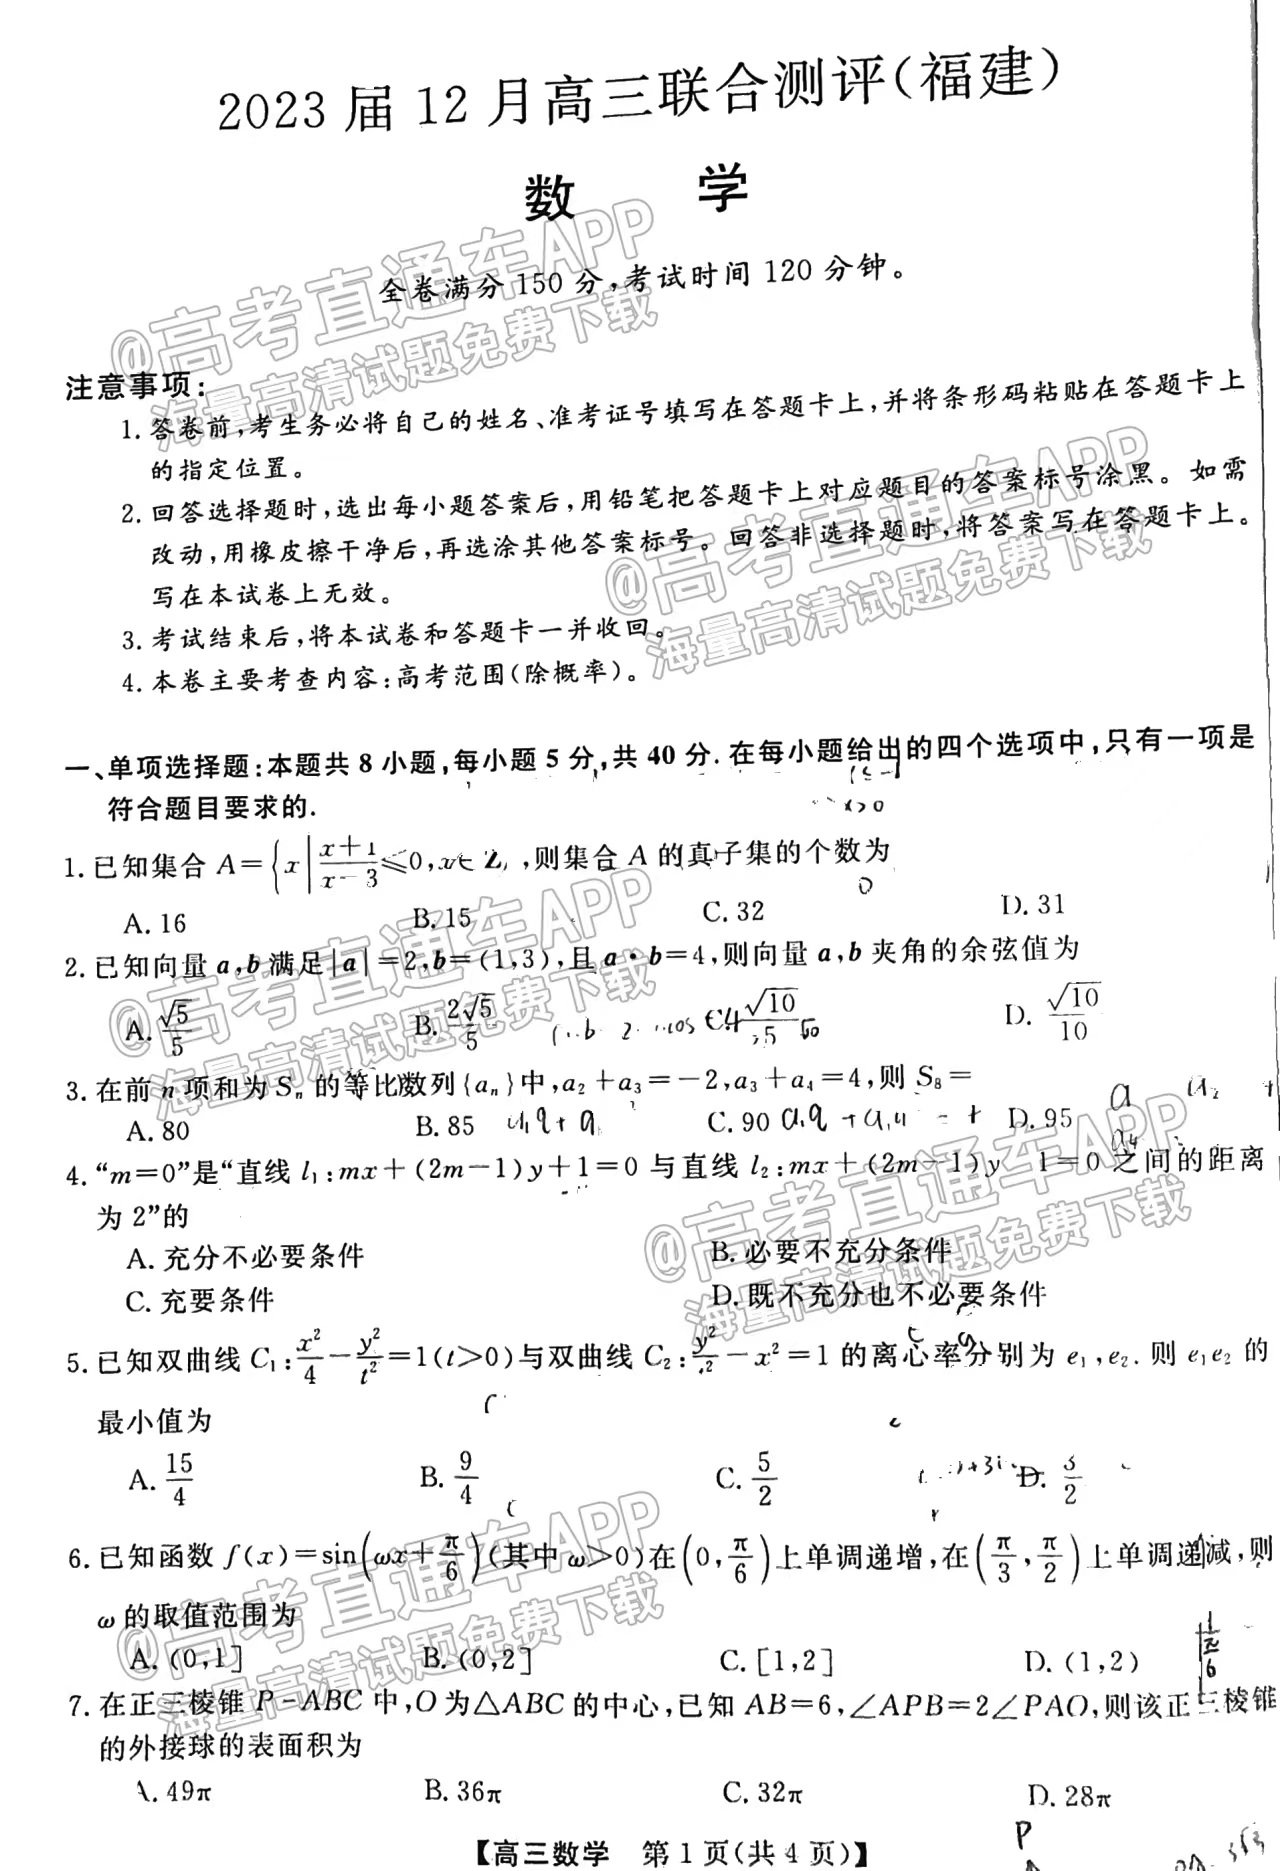 2023届12月高三联合测评(福建)
数 学
全卷满分150分,考试时间120分钟。
注意事项:
1. 答卷前,考生务必将自己的姓名、准考证号填写在答题卡上,并将条形码粘贴在答题卡上
的指定位置。
2. 回答选择题时,选出每小题答案后,用铅笔把答题卡上对应题目的答案标号涂黑。如需
改动,用橡皮擦干净后,再选涂其他答案标号。回答非选择题时,将答案写在答题卡上。
写在本试卷上无效。
3. 考试结束后,将本试卷和答题卡一并收回。
4. 本卷主要考查内容:高考范围(除概率)。
一、单项选择题:本题共8小题,每小题5分,共40分.在每小题给出的四个选项中,只有一项是
符合题目要求的.
x>0
1. 已知集合 A={x|(x+1)/(x-3)≤0,x∈Z},则集合 A 的真子集的个数为
A. 16 B. 15 C. 32 D. 31
2. 已知向量 a,b 满足|a|=2,b=(1,3),且 a·b=4,则向量 a,b 夹角的余弦值为
A. √5/5 B. 2√5/5 C. √10/5 D. √10/10
3. 在前 n 项和为 Sₙ 的等比数列{aₙ}中,a₂+a₃=-2,a₃+a₄=4,则 S₈=
A. 80 B. 85 C. 90 D. 95
4. “m=0”是“直线 l₁:mx+(2m-1)y+1=0 与直线 l₂:mx+(2m-1)y 1=0 之间的距离
为 2”的
A. 充分不必要条件 B. 必要不充分条件
C. 充要条件 D. 既不充分也不必要条件
5. 已知双曲线 C₁:x²/4-y²/t²=1(t>0)与双曲线 C₂:y²/t²-x²=1 的离心率分别为 e₁,e₂. 则 e₁e₂ 的
最小值为
A. 15/4 B. 9/4 C. 5/2 D. 3/2
6. 已知函数 f(x)=sin(ωx+π/6)(其中 ω>0)在(0,π/6)上单调递增,在(π/3,π/2)上单调递减,则
ω 的取值范围为
A. (0,1] B. (0,2] C. [1,2] D. (1,2)
7. 在正三棱锥 P-ABC 中,O 为△ABC 的中心,已知 AB=6,∠APB=2∠PAO,则该正三棱锥
的外接球的表面积为
A. 49π B. 36π C. 32π D. 28π
P
【高三数学 第1页(共4页)】
@高考直通车APP
海量高清试题免费下载
@高考直通车APP
海量高清试题免费下载
@高考直通车APP
海量高清试题免费下载
@高考直通车APP
海量高清试题免费下载
@高考直通车APP
海量高清试题免费下载